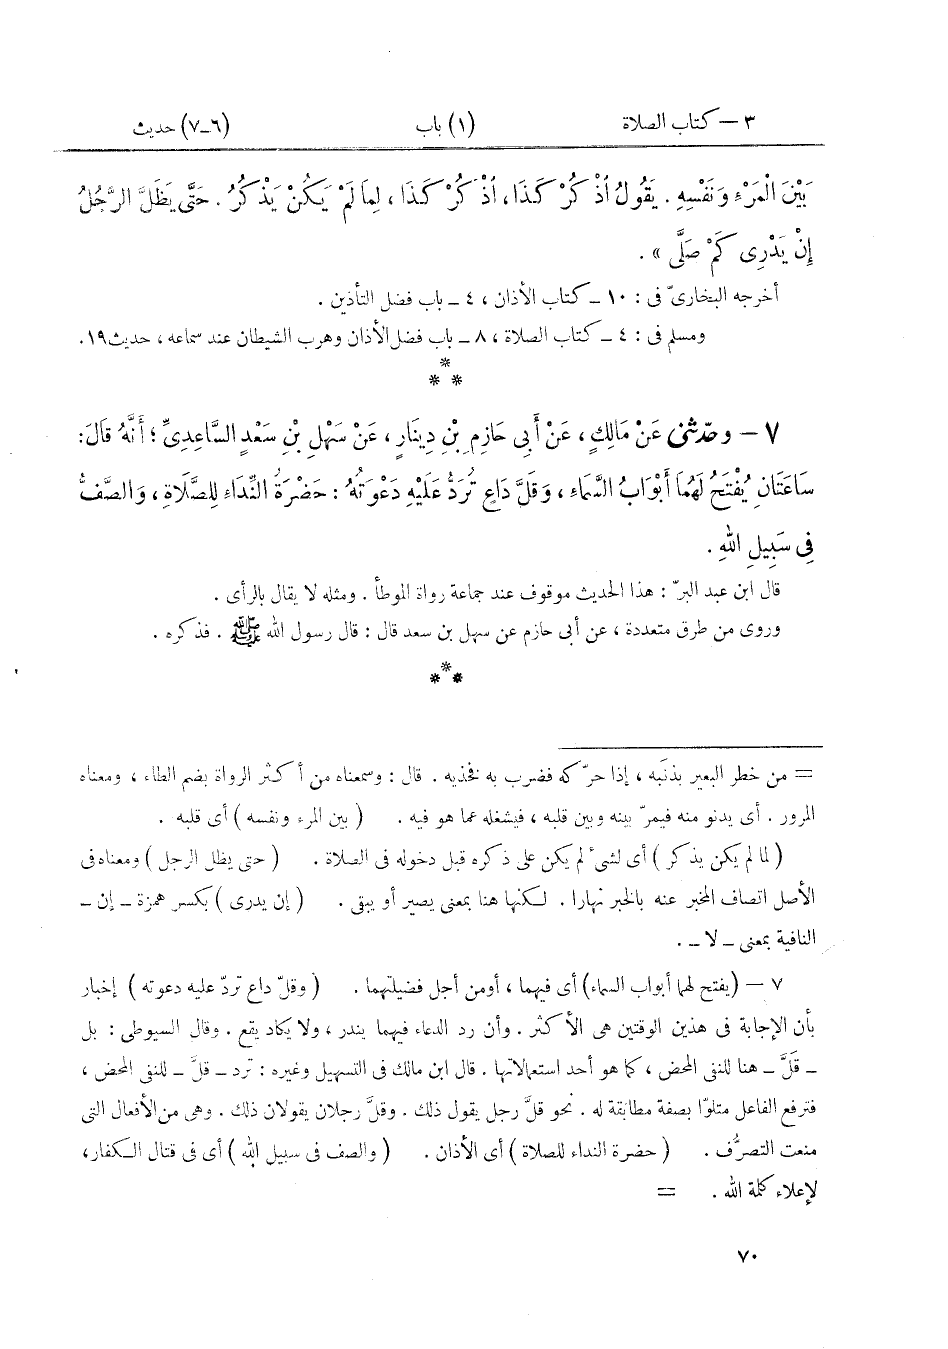 ٣ – كتاب الصلاة (١) باب (٦-٧) حديث
بَيْنَ الْمَرْءِ وَنَفْسِهِ . يَقُولُ اُذْكُرْ كَذَا، اُذْكُرْ كَذَا ، لِمَا لَمْ يَكُنْ يَذْكُرُ . حَتَّى يَظَلَّ الرَّجُلُ
إِنْ يَدْرِى كَمْ صَلَّى » .
أخرجه البخارىّ فى : ١٠ – كتاب الأذان ، ٤ – باب فضل التأذين .
ومسلم فى : ٤ – كتاب الصلاة ، ٨ – باب فضل الأذان وهرب الشيطان عند سماعه ، حديث ١٩ .
*
* *
٧ – وحدّثنى عَنْ مَالِكٍ ، عَنْ أَبِى حَازِمِ بْنِ دِينَارٍ ، عَنْ سَهْلِ بْنِ سَعْدٍ السَّاعِدِىِّ ؛ أَنَّهُ قَالَ:
سَاعَتَانِ يُفْتَحُ لَهُمَا أَبْوَابُ السَّمَاءِ ، وَقَلَّ دَاعٍ تُرَدُّ عَلَيْهِ دَعْوَتُهُ : حَضْرَةُ النِّدَاءِ لِلصَّلَاةِ ، وَالصَّفُّ
فِى سَبِيلِ اللهِ .
قال ابن عبد البرّ : هذا الحديث موقوف عند جماعة رواة الموطأ . ومثله لا يقال بالرأى .
وروى من طرق متعددة ، عن أبى حازم عن سهل بن سعد قال : قال رسول الله ﷺ . فذكره .
*
* *
= من خطر البعير بذنَبه ، إذا حرّكه فضرب به فخذيه . قال : وسمعناه من أكثر الرواة بضم الطاء ، ومعناه
المرور . أى يدنو منه فيمرّ بينه وبين قلبه ، فيشغله عما هو فيه . ( بين المرء ونفسه ) أى قلبه .
( لما لم يكن يذكر ) أى لشىء لم يكن على ذكره قبل دخوله فى الصلاة . ( حتى يظل الرجل ) ومعناه فى
الأصل اتصاف المخبر عنه بالخبر نهارا . لكنها هنا بمعنى يصير أو يبقى . ( إن يدرى ) بكسر همزة – إن –
النافية بمعنى – لا – .
٧ – (يفتح لهما أبواب السماء) أى فيهما ، أو من أجل فضيلتهما . ( وقلّ داع تردّ عليه دعوته ) إخبار
بأن الإجابة فى هذين الوقتين هى الأكثر . وأن رد الدعاء فيهما يندر ، ولا يكاد يقع . وقال السيوطى : بل
– قَلَّ – هنا للنفى المحض ، كما هو أحد استعمالاتها . قال ابن مالك فى التسهيل وغيره : ترد – قلَّ – للنفى المحض ،
فترفع الفاعل متلوّا بصفة مطابقة له . نحو قلَّ رجل يقول ذلك . وقلَّ رجلان يقولان ذلك . وهى من الأفعال التى
منعت التصرُّف . ( حضرة النداء للصلاة ) أى الأذان . ( والصف فى سبيل الله ) أى فى قتال الكفار،
لإعلاء كلمة الله . =
٧٠